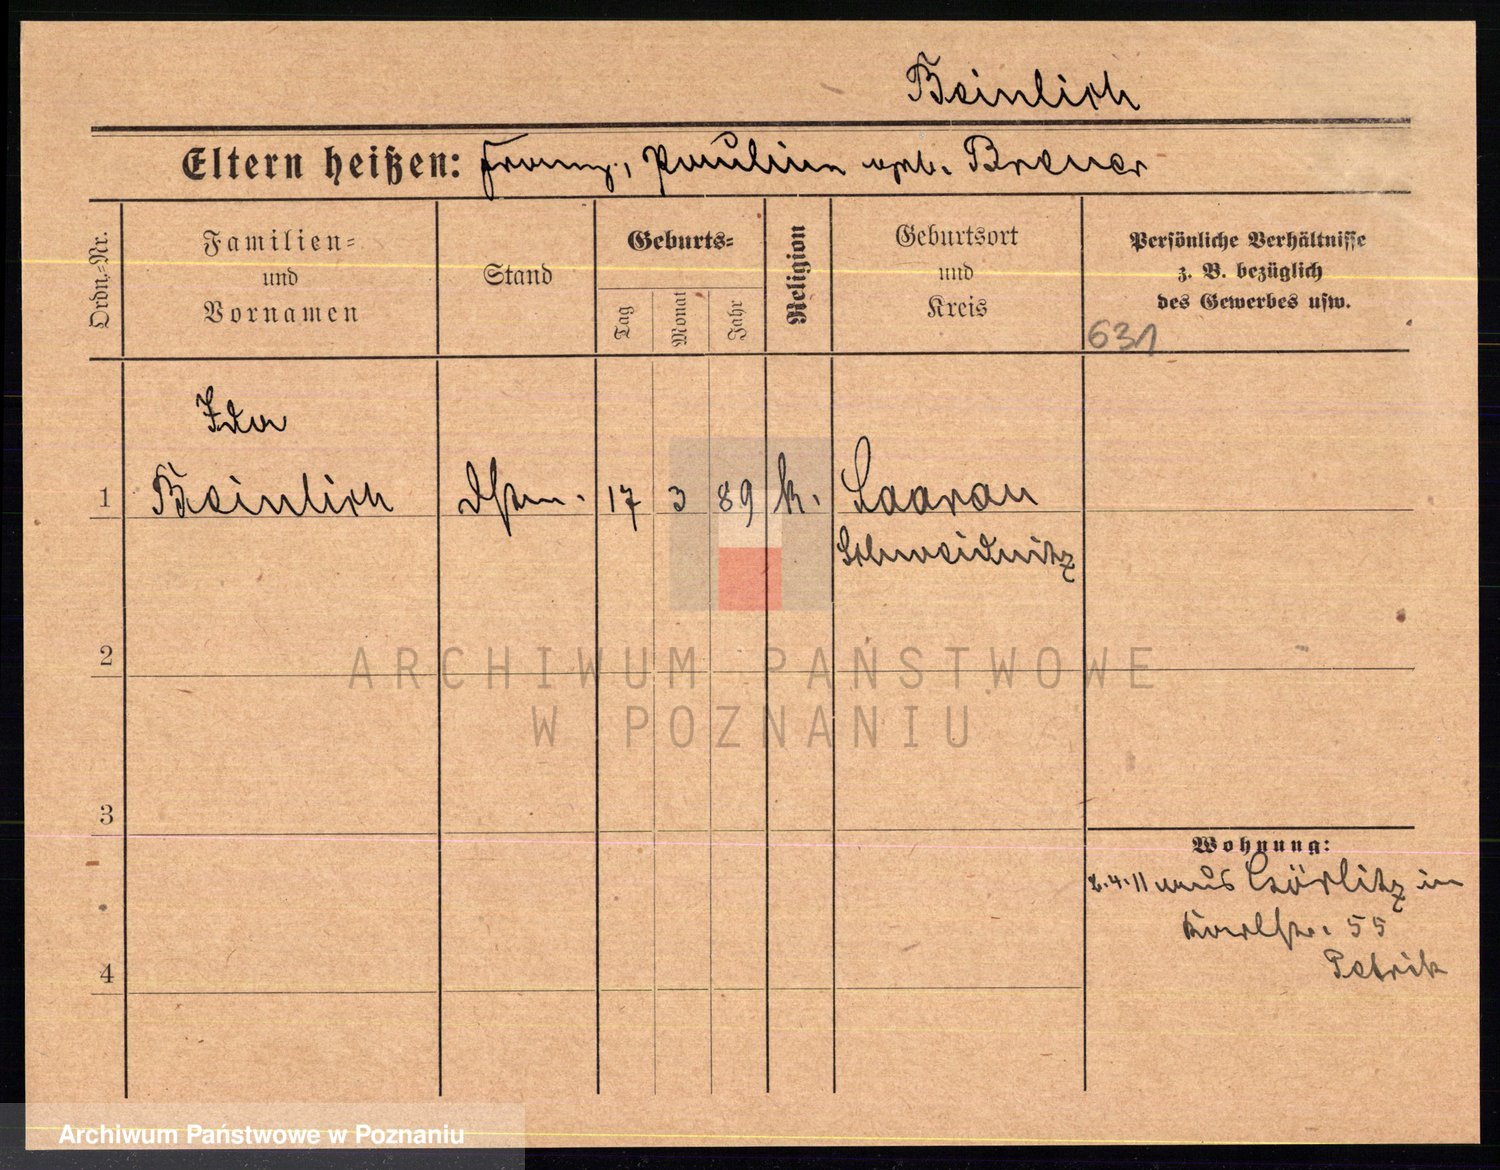 Beinlich
Eltern heißen: Franz, Pauline geb. Brener
Ordn.-Nr.
Familien-
und
Vornamen
Stand
Geburts-
Tag
Monat
Jahr
Religion
Geburtsort
und
Kreis
Persönliche Verhältnisse
z. B. bezüglich
des Gewerbes usw.
631
Ida
1 Beinlich 17 3 89 k. Saarau
Schweidnitz
2
ARCHIWUM PAŃSTWOWE
W POZNANIU
3
Wohnung:
2.4.11 aus Görlitz in
Karlstr. 55
4
Archiwum Państwowe w Poznaniu